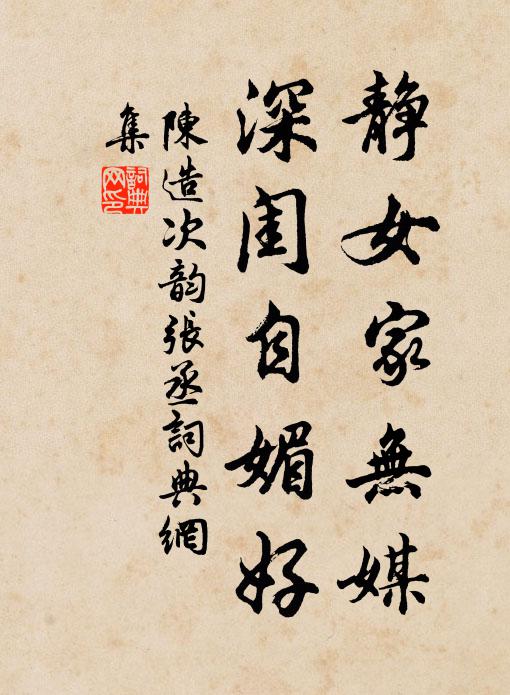 静女家無媒
深閨自媚好
陳造次韵張丞詞典網
集
詞典
网印